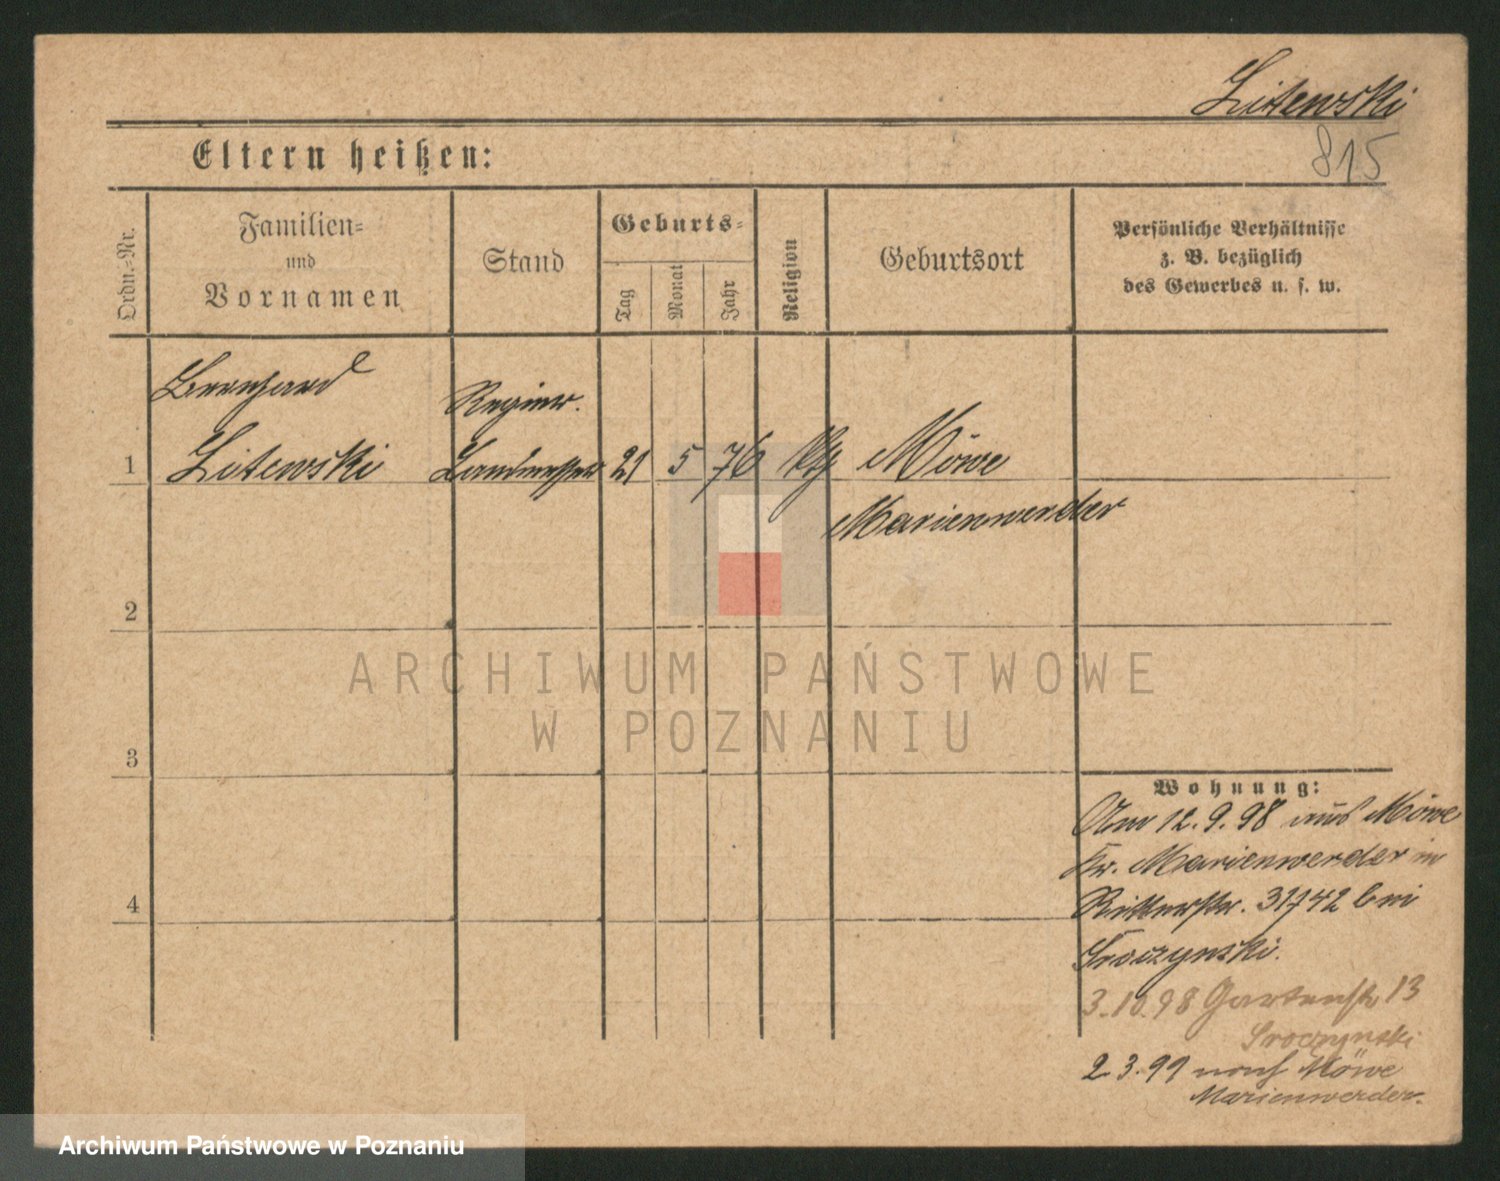 Litewski
815
Eltern heißen:
Ordn.-Nr.
Familien-
und
Vornamen
Stand
Geburts-
Tag
Monat
Jahr
Religion
Geburtsort
Persönliche Verhältnisse
z. B. bezüglich
des Gewerbes u. s. w.
Bernhard
Litewski
Landmesser
1
21
5
76
Möwe
Marienwerder
2
3
4
Wohnung:
12.9.98 aus Möwe
Kr. Marienwerder in
Ritterstr. 31/42 bei
Sroczynski.
3.10.98 Gartenstr 13
Sroczynski
2.3.99 nach Möwe
Marienwerder.
ARCHIWUM PAŃSTWOWE
W POZNANIU
Archiwum Państwowe w Poznaniu